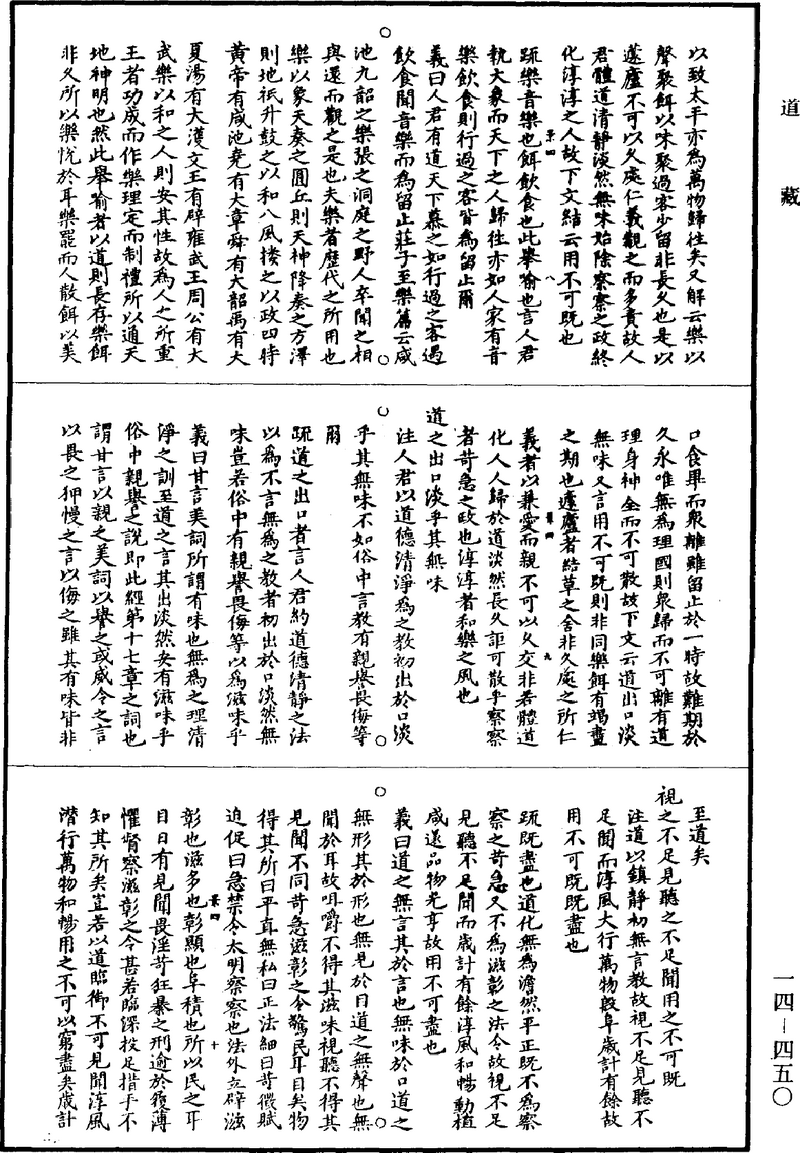 道藏
以致太平亦為萬物歸往矣又解云樂以
聲聚餌以味聚過客少留非長久也是以
蘧廬不可以久處仁義觀之而多責故人
君體道清靜淡然無味始除察察之政終
化淳淳之人故下文結云用不可既也
疏樂音樂也餌飲食也此舉喻也言人君
執大象而天下之人歸往亦如人家有音
樂飲食則行過之客皆為留止爾
義曰人君有道天下慕之如行過之客遇
飲食聞音樂而為留止莊子至樂篇云咸
池九韶之樂張之洞庭之野人卒聞之相
與還而觀之是也夫樂者歷代之所用也
樂以象天奏之圓丘則天神降奏之方澤
則地祇升鼓之以和八風揍之以政四時
黃帝有咸池堯有大章舜有大韶禹有大
夏湯有大濩文王有辟雍武王周公有大
武樂以和之人則安其性故為人之所重
王者功成而作樂理定而制禮所以通天
地神明也然此舉喻者以道則長存樂餌
非久所以樂悅於耳樂罷而人散餌以美
口食畢而眾離雖留止於一時故難期於
久永唯無為理國則眾歸而不可離有道
理身神全而不可散故下文云道出口淡
無味又言用不可既則非同樂餌有竭盡
之期也蘧廬者結草之舍非久處之所仁
義者以兼愛而親不可以久交非若體道
化人人歸於道淡然長久詎可散乎察察
者苛急之政也淳淳者和樂之風也
道之出口淡乎其無味
注人君以道德清淨為之教初出於口淡
乎其無味不如俗中言教有親譽畏侮等
爾
疏道之出口者言人君約道德清靜之法
以為不言無為之教者初出於口淡然無
味豈若俗中有親譽畏侮等以為滋味乎
義曰甘言美詞所謂有味也無為之理清
淨之訓至道之言其出淡然安有滋味乎
俗中親譽之說即此經第十七章之詞也
謂甘言以親之美詞以譽之或威令之言
以畏之狎慢之言以侮之雖其有味皆非
至道矣
視之不足見聽之不足聞用之不可既
注道以鎮靜初無言教故視不足見聽不
足聞而淳風大行萬物殷阜歲計有餘故
用不可既既盡也
疏既盡也道化無為澹然平正既不為察
察之苛急又不為滋彰之法令故視不足
見聽不足聞而歲計有餘淳風和暢動植
咸遂品物光亨故用不可盡也
義曰道之無言其於言也無味於口道之
無形其於形也無見於目道之無聲也無
聞於耳故咀嚼不得其滋味視聽不得其
見聞不同苛急滋彰之令驚民耳目矣物
得其所曰平直無私曰正法細曰苛徵賦
迫促曰急禁令太明察察也法外立辟滋
彰也滋多也彰顯也阜積也所以民之耳
目日有見聞畏淫苛狂暴之刑逾於履薄
懼督察滋彰之令甚若臨深投足措手不
知其所矣豈若以道臨御不可見聞淳風
潛行萬物和暢用之不可以窮盡矣歲計
一四－四五〇